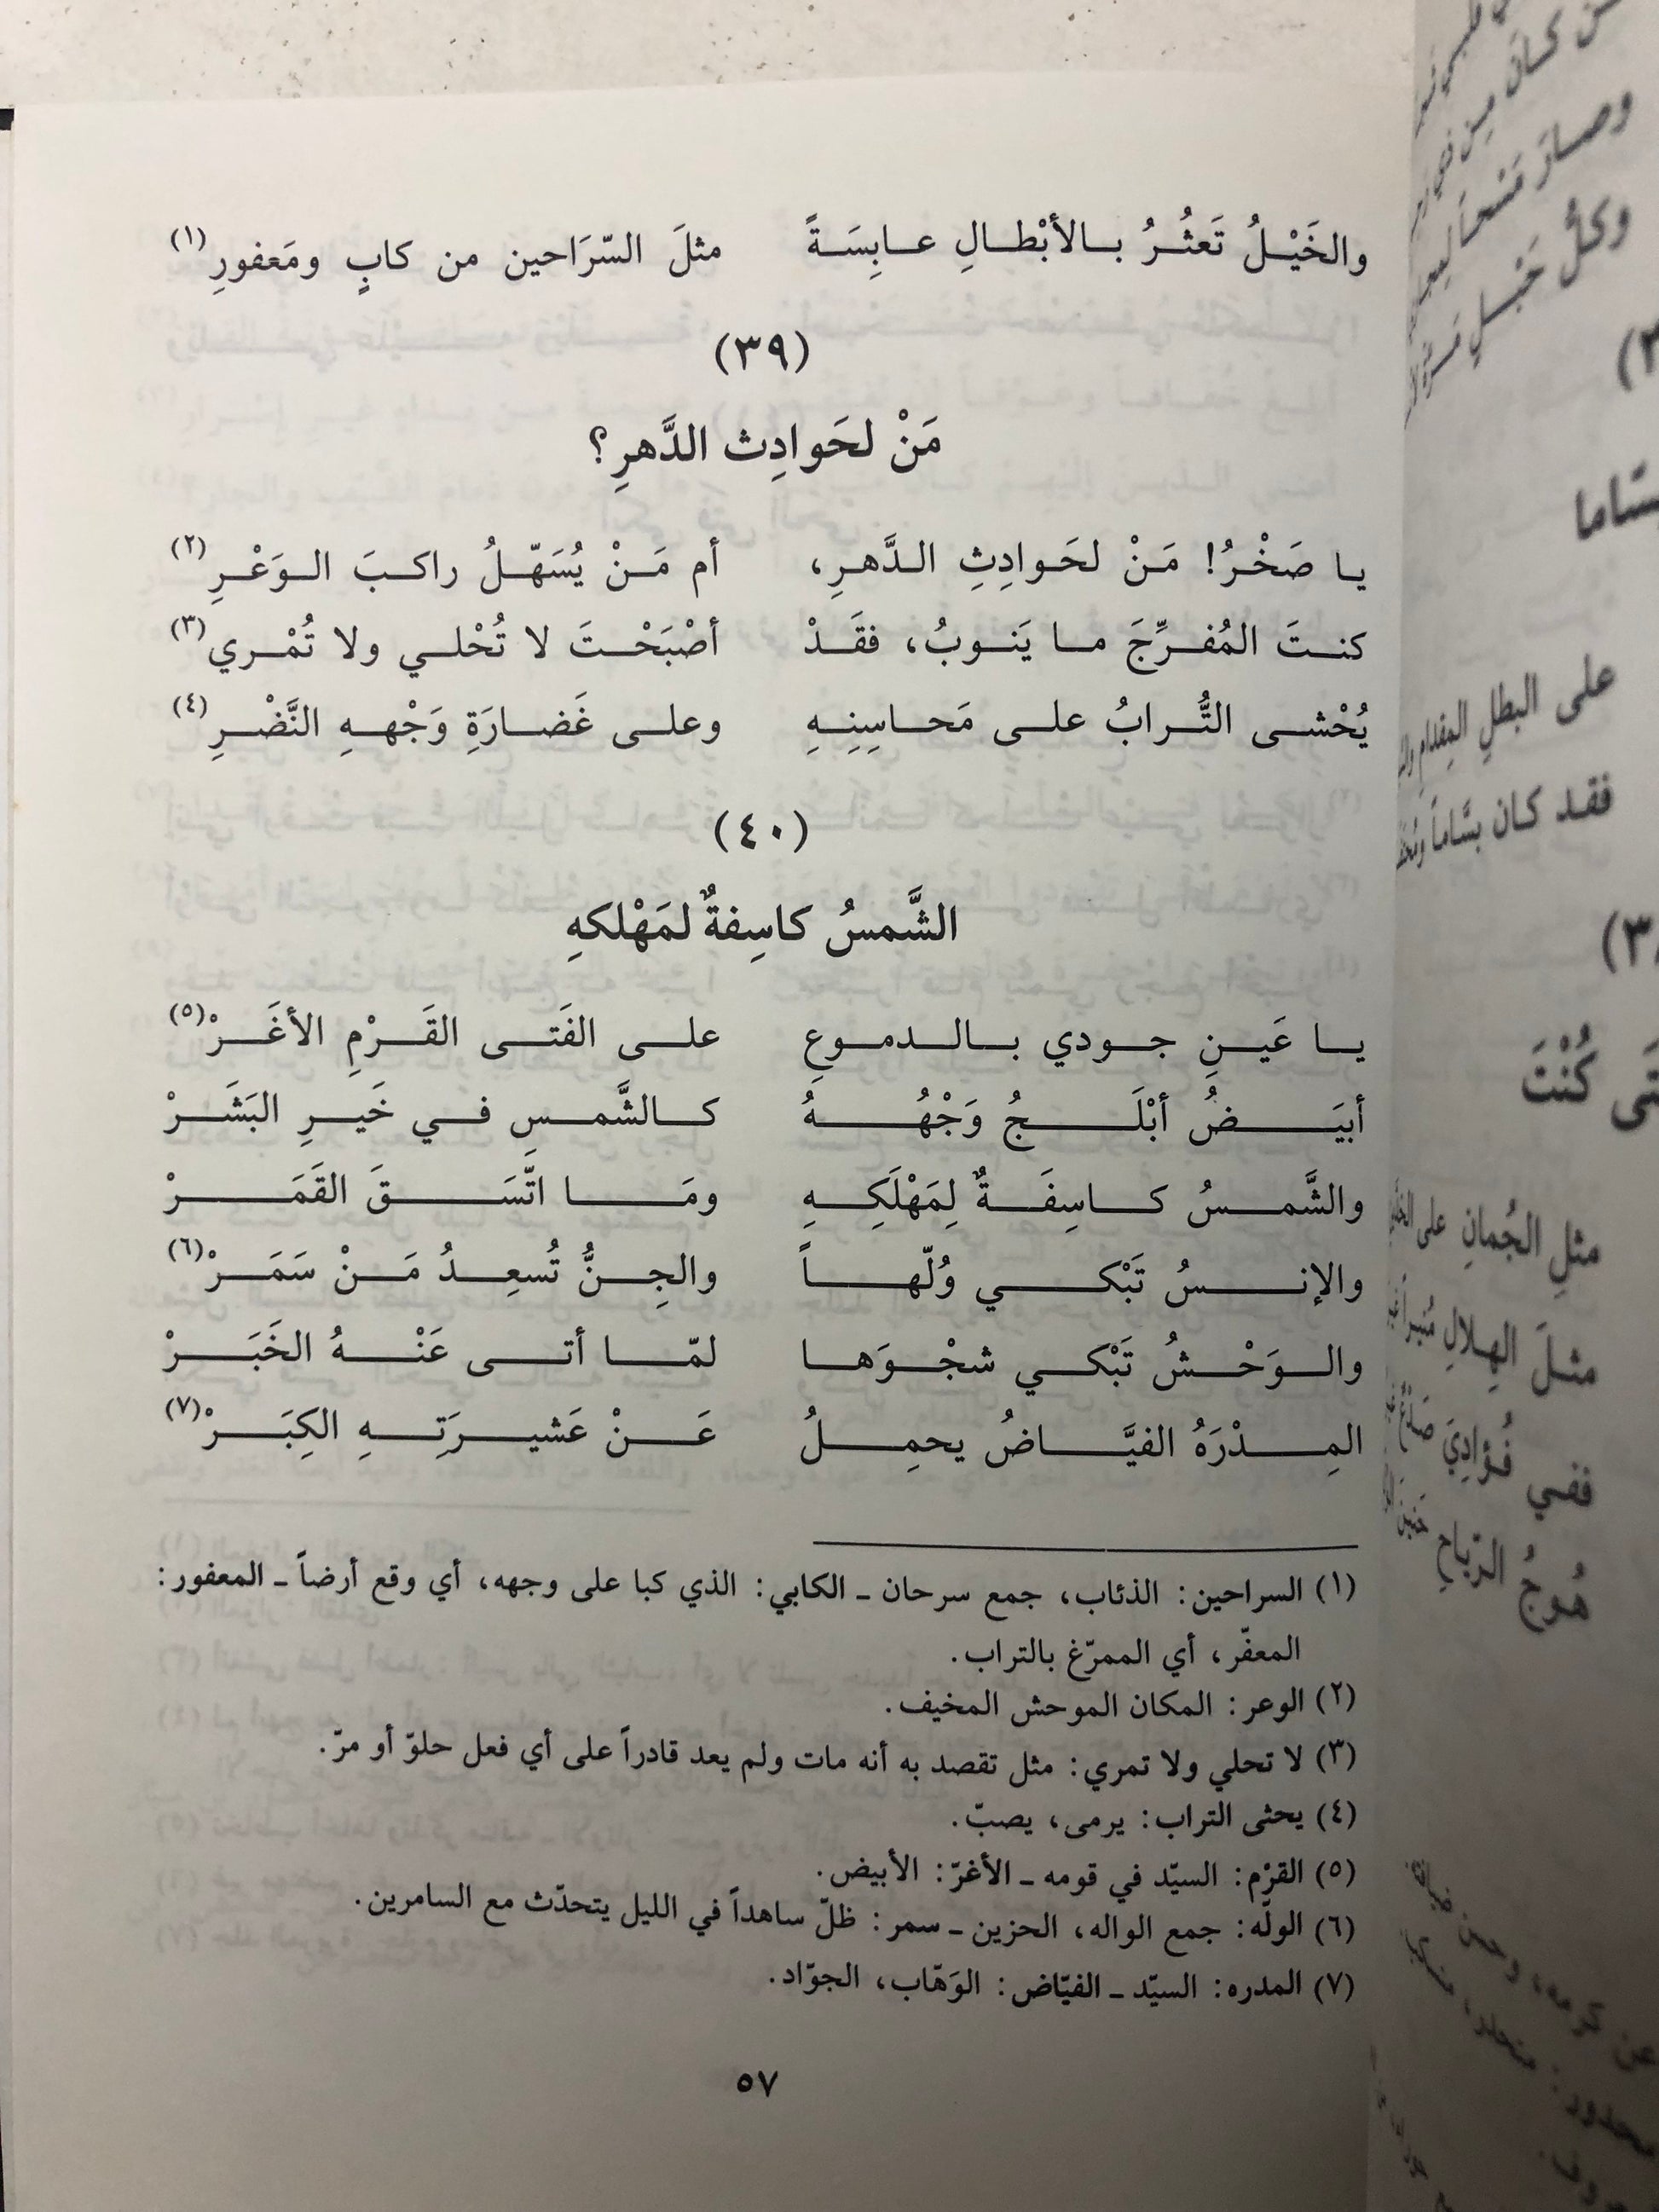 والخَيْلُ تَعثُرُ بالأبْطالِ عابِسَةً مثلَ السّرَاحين من كابٍ ومَعفورِ(١)
(٣٩)
مَنْ لحَوادِث الدَّهرِ؟
يا صَخْرُ! مَنْ لحَوادِثِ الدَّهرِ، أم مَنْ يُسَهّلُ راكبَ الوَعْرِ(٢)
كنتَ المُفرِّجَ ما يَنوبُ، فقَدْ أصْبَحْتَ لا تُحْلي ولا تُمْري(٣)
يُحْثى التُّرابُ على مَحاسِنِهِ وعلى غَضارَةِ وَجْههِ النَّضْرِ(٤)
(٤٠)
الشَّمسُ كاسِفةٌ لمَهْلكهِ
يا عَينِ جودي بالدموعِ على الفَتى القَرْمِ الأغَرْ(٥)
أبيَضُ أبْلَجُ وَجْهُهُ كالشَّمسِ في خَيرِ البَشَرْ
والشَّمسُ كاسِفَةٌ لِمَهْلَكِهِ ومَا اتّسَقَ القَمَرْ
والإنسُ تَبْكي وُلّهاً والجِنُّ تُسعِدُ مَنْ سَمَرْ(٦)
والوَحْشُ تَبْكي شجْوَها لمّا أتى عَنْهُ الخَبَرْ
المِدْرَهُ الفيَّاضُ يحمِلُ عَنْ عَشيرَتِهِ الكِبَرْ(٧)
(١) السراحين: الذئاب، جمع سرحان ـ الكابي: الذي كبا على وجهه، أي وقع أرضاً ـ المعفور:
المعفّر، أي الممرّغ بالتراب.
(٢) الوعر: المكان الموحش المخيف.
(٣) لا تحلي ولا تمري: مثل تقصد به أنه مات ولم يعد قادراً على أي فعل حلوّ أو مرّ.
(٤) يحثى التراب: يرمى، يصبّ.
(٥) القرْم: السيّد في قومه ـ الأغرّ: الأبيض.
(٦) الولّه: جمع الواله، الحزين ـ سمر: ظلّ ساهداً في الليل يتحدّث مع السامرين.
(٧) المدره: السيّد ـ الفيّاض: الوَهّاب، الجوّاد.
٥٧
على البطلِ المِقدامِ
فقد كان بسَّاماً
كُنْتَ
مثلِ الجُمانِ على
مثلَ الهِلالِ مُنيراً
ففي فُؤادِيَ صَدْعٌ
هُوجُ الرّياحِ حَنينَ